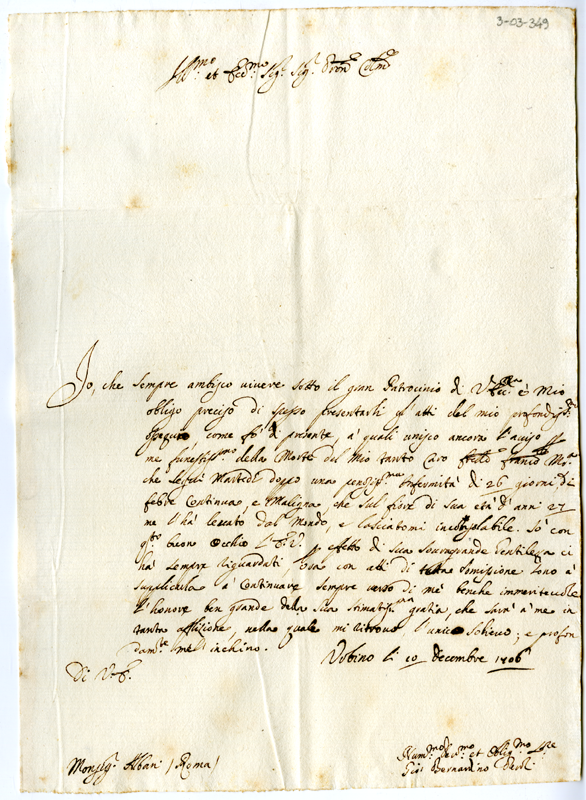 3-03-349
Ill.mo et Ecc.mo Sig.r Sig.r Pron.e Col.mo
Io, che sempre ambisco vivere sotto il gran Patrocinio di V. Ecc.za è Mio
obligo preciso di spesso presentarli gl'atti del mio profondiss.o
ossequio, come fò di presente, a' quali unisco ancora l'aviso p
me funestiss.mo della Morte del Mio tanto Caro fratello
che seguì Martedì doppo una penosiss.ma infermità di 26 giorni di
febre Continua, e Maligna, che sul fiore di sua età d'anni 27
me l'hà levato dal Mondo, e lasciatomi inconsolabile. Sò con
q.to buon occhio l'E.V. p effetto di sua Sovragrande Gentilezza ci
hà sempre riguardati, Onde con atti di tutta Somissione Sono à
supplicherla à Continuare sempre verso di me benche immeritevole
l'honore ben grande della Sua stimatiss.ma gratia, che sarà à me in
tanta afflizione, nella quale mi ritrovo l'unico Solievo; e profon
dam.te me l'inchino.
Urbino li 10 decembre 1706
Di V.E.
Monsig.r Albani (Roma)
Hum.mo Dev.mo et Oblig.mo Ser.re
Gio: Bernardino